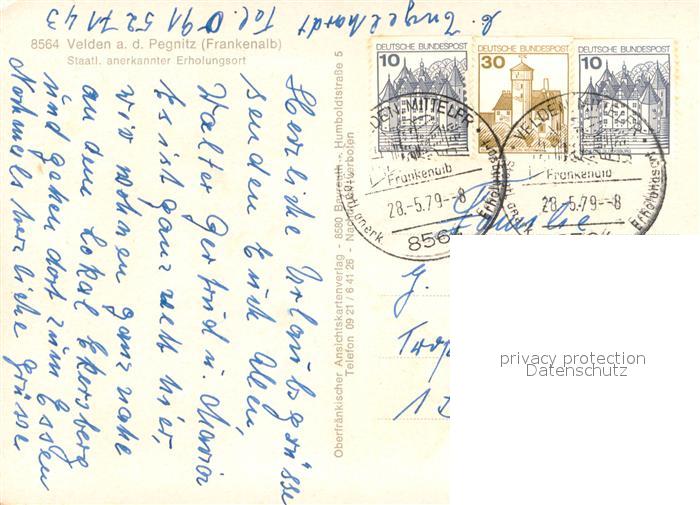 b. Engelhardt
Tel. 0 91 52 71 43
8564 Velden a. d. Pegnitz (Frankenalb)
Staatl. anerkannter Erholungsort
Herzliche Urlaubsgrüsse
senden Euch Allen,
Walter Gertrud u. Maria
Es ist ganz nett hier,
wir wohnen ganz nahe
an dem Lokal Ekersberg
und gehen dort zum Essen
Nochmals herzliche Grüsse
Oberfränkischer Ansichtskartenverlag - 8580 Bayreuth - Humboldtstraße 5
Telefon 09 21 / 6 41 26 - Nachdruck verboten
DEUTSCHE BUNDESPOST
10
DEUTSCHE BUNDESPOST
30
DEUTSCHE BUNDESPOST
10
VELDEN, MITTELFR.
Frankenalb
28.-5.79.-8
8564
VELDEN, MITTELFR.
Frankenalb
28.-5.79.-8
Erholungsort
Familie
G.
privacy protection
Datenschutz